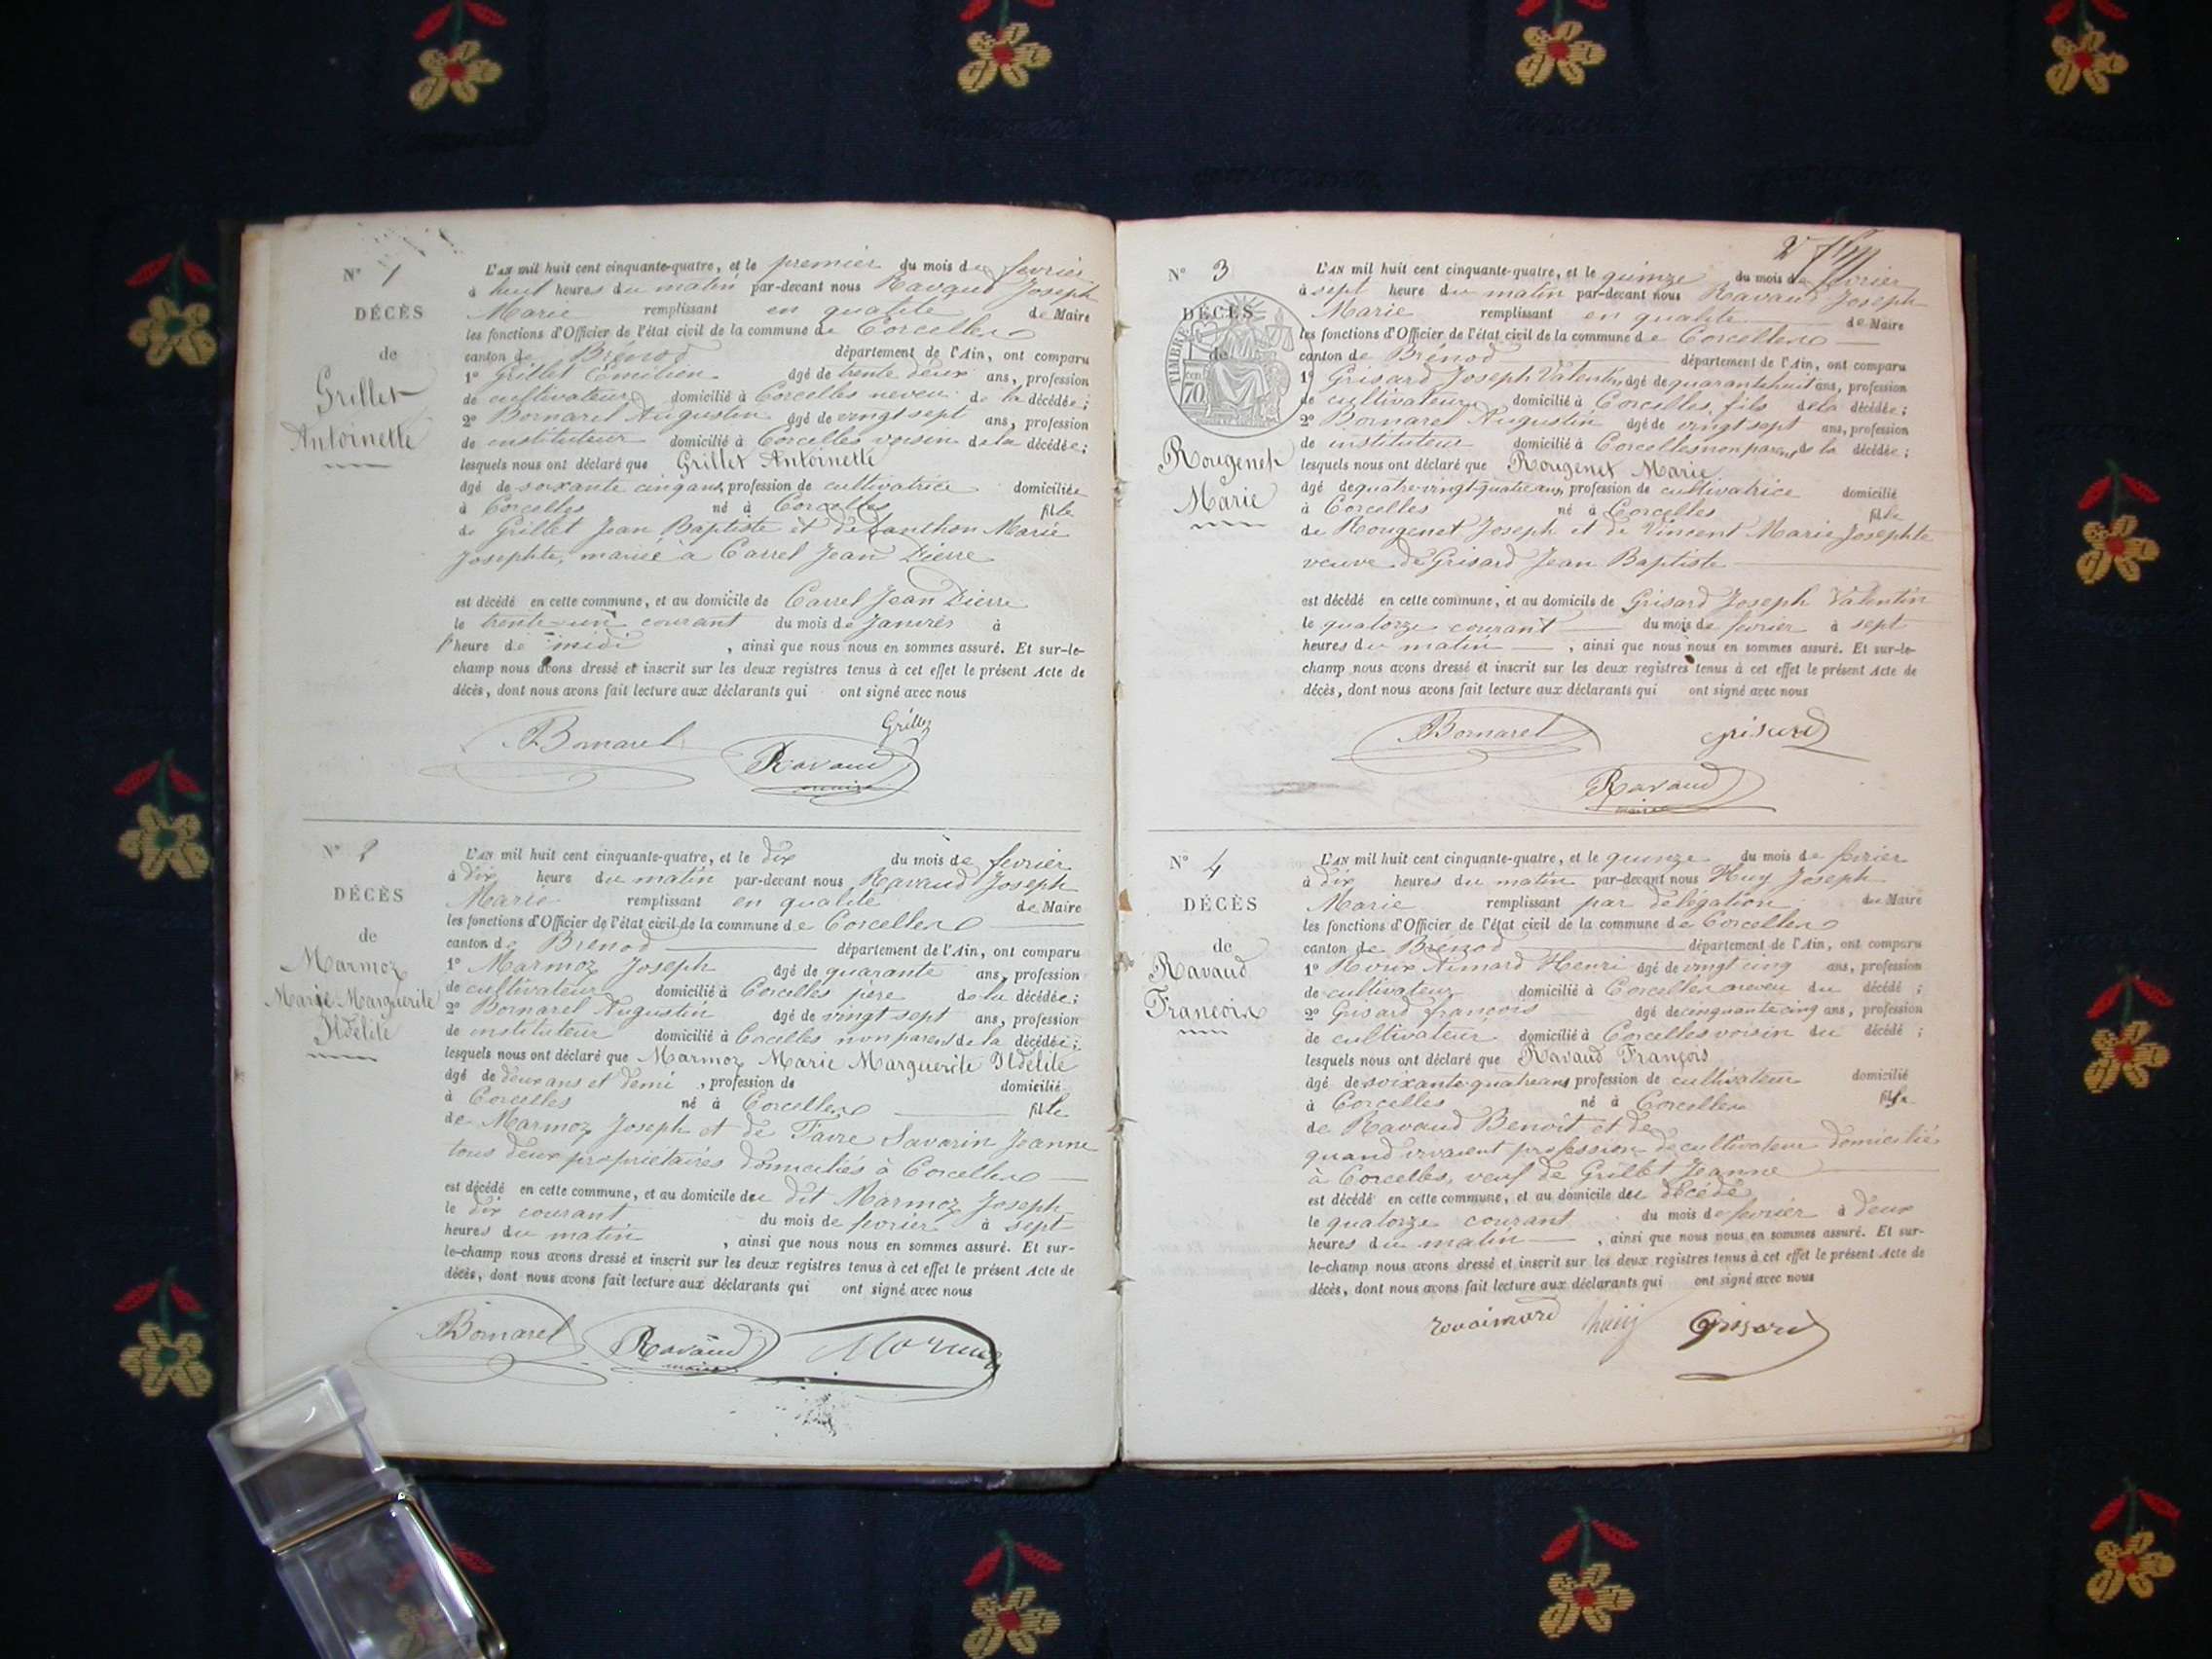 N° 1
DÉCÈS
de
Grillet
Antoinette
L'AN mil huit cent cinquante-quatre, et le premier du mois de fevrier
à huit heures du matin par-devant nous Ravaud Joseph
Marie remplissant en qualité de Maire
les fonctions d'Officier de l'état civil de la commune de Corcelles
canton de Brénod département de l'Ain, ont comparu
1° Grillet Émilien âgé de trente deux ans, profession
de cultivateur domicilié à Corcelles neveu de la décédée;
2° Bornarel Augustin âgé de vingt sept ans, profession
de instituteur domicilié à Corcelles voisin de la décédée;
lesquels nous ont déclaré que Grillet Antoinette
âgé de soixante cinq ans, profession de cultivatrice domiciliée
à Corcelles né à Corcelles fille
de Grillet Jean Baptiste et de Lanthon Marie
Josephte, mariée à Carrel Jean Pierre
est décédé en cette commune, et au domicile de Carrel Jean Pierre
le trente-un courant du mois de Janvier à
l'heure de midi, ainsi que nous nous en sommes assuré. Et sur-le-
champ nous avons dressé et inscrit sur les deux registres tenus à cet effet le présent Acte de
décès, dont nous avons fait lecture aux déclarants qui ont signé avec nous
Grillet
Bornarel
Ravaud
maire
N° 2
DÉCÈS
de
Marmoz
Marie Marguerite
Adélite
L'AN mil huit cent cinquante-quatre, et le dix du mois de fevrier
à dix heure du matin par-devant nous Ravaud Joseph
Marie remplissant en qualité de Maire
les fonctions d'Officier de l'état civil de la commune de Corcelles
canton de Brenod département de l'Ain, ont comparu
1° Marmoz Joseph âgé de quarante ans, profession
de cultivateur domicilié à Corcelles père de la décédée;
2° Bornarel Augustin âgé de vingt sept ans, profession
de instituteur domicilié à Corcelles non parent de la décédée;
lesquels nous ont déclaré que Marmoz Marie Marguerite Adélite
âgé de deux ans et demi, profession de domicilié
à Corcelles né à Corcelles fille
de Marmoz Joseph et de Favre Savarin Jeanne
tous deux propriétaires domiciliés à Corcelles
est décédé en cette commune, et au domicile du dit Marmoz Joseph
le dix courant du mois de fevrier à sept
heures du matin, ainsi que nous nous en sommes assuré. Et sur-
le-champ nous avons dressé et inscrit sur les deux registres tenus à cet effet le présent Acte de
décès, dont nous avons fait lecture aux déclarants qui ont signé avec nous
Bornarel Ravaud Marmoz
maire
2
N° 3
DÉCÈS
de
TIMBRE
70
Rougenet
Marie
L'AN mil huit cent cinquante-quatre, et le quinze du mois de fevrier
à sept heure du matin par-devant nous Ravaud Joseph
Marie remplissant en qualité de Maire
les fonctions d'Officier de l'état civil de la commune de Corcelles
canton de Brénod département de l'Ain, ont comparu
1° Grisard Joseph Valentin, âgé de quarante huit ans, profession
de cultivateur domicilié à Corcelles, fils de la décédée;
2° Bornarel Augustin âgé de vingt sept ans, profession
de instituteur domicilié à Corcelles non parent de la décédée;
lesquels nous ont déclaré que Rougenet Marie
âgé de quatre-vingt-quatre ans, profession de cultivatrice domicilié
à Corcelles né à Corcelles fille
de Rougenet Joseph et de Vincent Marie Josephte
veuve de Grisard Jean Baptiste
est décédé en cette commune, et au domicile de Grisard Joseph Valentin
le quatorze courant du mois de fevrier à sept
heures du matin, ainsi que nous nous en sommes assuré. Et sur-le-
champ nous avons dressé et inscrit sur les deux registres tenus à cet effet le présent Acte de
décès, dont nous avons fait lecture aux déclarants qui ont signé avec nous
Bornarel grisard
Ravaud
maire
N° 4
DÉCÈS
de
Ravaud
François
L'AN mil huit cent cinquante-quatre, et le quinze du mois de fevrier
à dix heures du matin par-devant nous Huy Joseph
Marie remplissant par délégation du Maire
les fonctions d'Officier de l'état civil de la commune de Corcelles
canton de Brénod département de l'Ain, ont comparu
1° Roux Aimard Henri âgé de vingt cinq ans, profession
de cultivateur domicilié à Corcelles neveu du décédé;
2° Grisard françois âgé de cinquante cinq ans, profession
de cultivateur domicilié à Corcelles voisin du décédé;
lesquels nous ont déclaré que Ravaud François
âgé de soixante quatre ans profession de cultivateur domicilié
à Corcelles né à Corcelles fils
de Ravaud Benoît et de
quand vivaient profession de cultivateur domiciliés
à Corcelles, veuf de Grillet Jeanne
est décédé en cette commune, et au domicile du décédé
le quatorze courant du mois de fevrier à deux
heures du matin, ainsi que nous nous en sommes assuré. Et sur-
le-champ nous avons dressé et inscrit sur les deux registres tenus à cet effet le présent Acte de
décès, dont nous avons fait lecture aux déclarants qui ont signé avec nous
huy Grisard